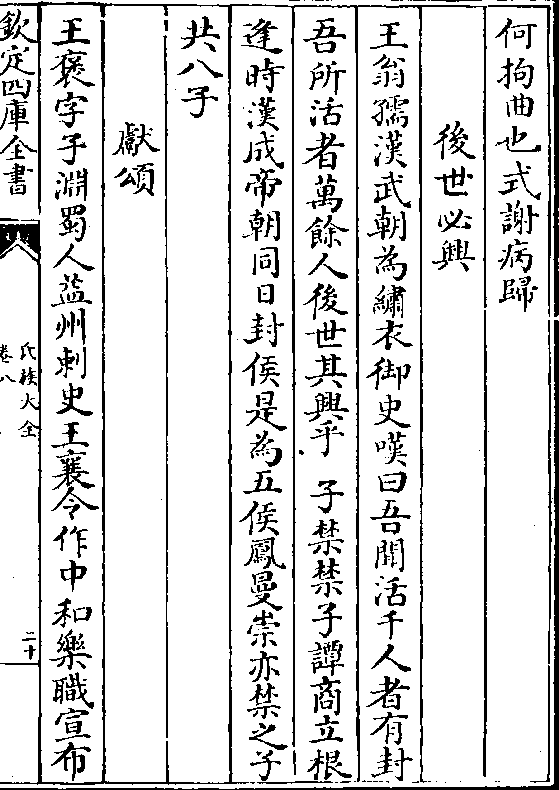 何拘曲也式謝病歸
後世必興
王翁孺漢武朝為繡衣御史嘆曰吾聞活千人者有封
吾所活者萬餘人後世其興乎 子禁禁子譚商立根
逢時漢成帝朝同日封侯是為五侯鳳曼崇亦禁之子
共八子
獻頌
王褒字子淵蜀人益州刺史王襄令作中和樂職宣布
欽定四庫全書
氏族大全
卷八
二十